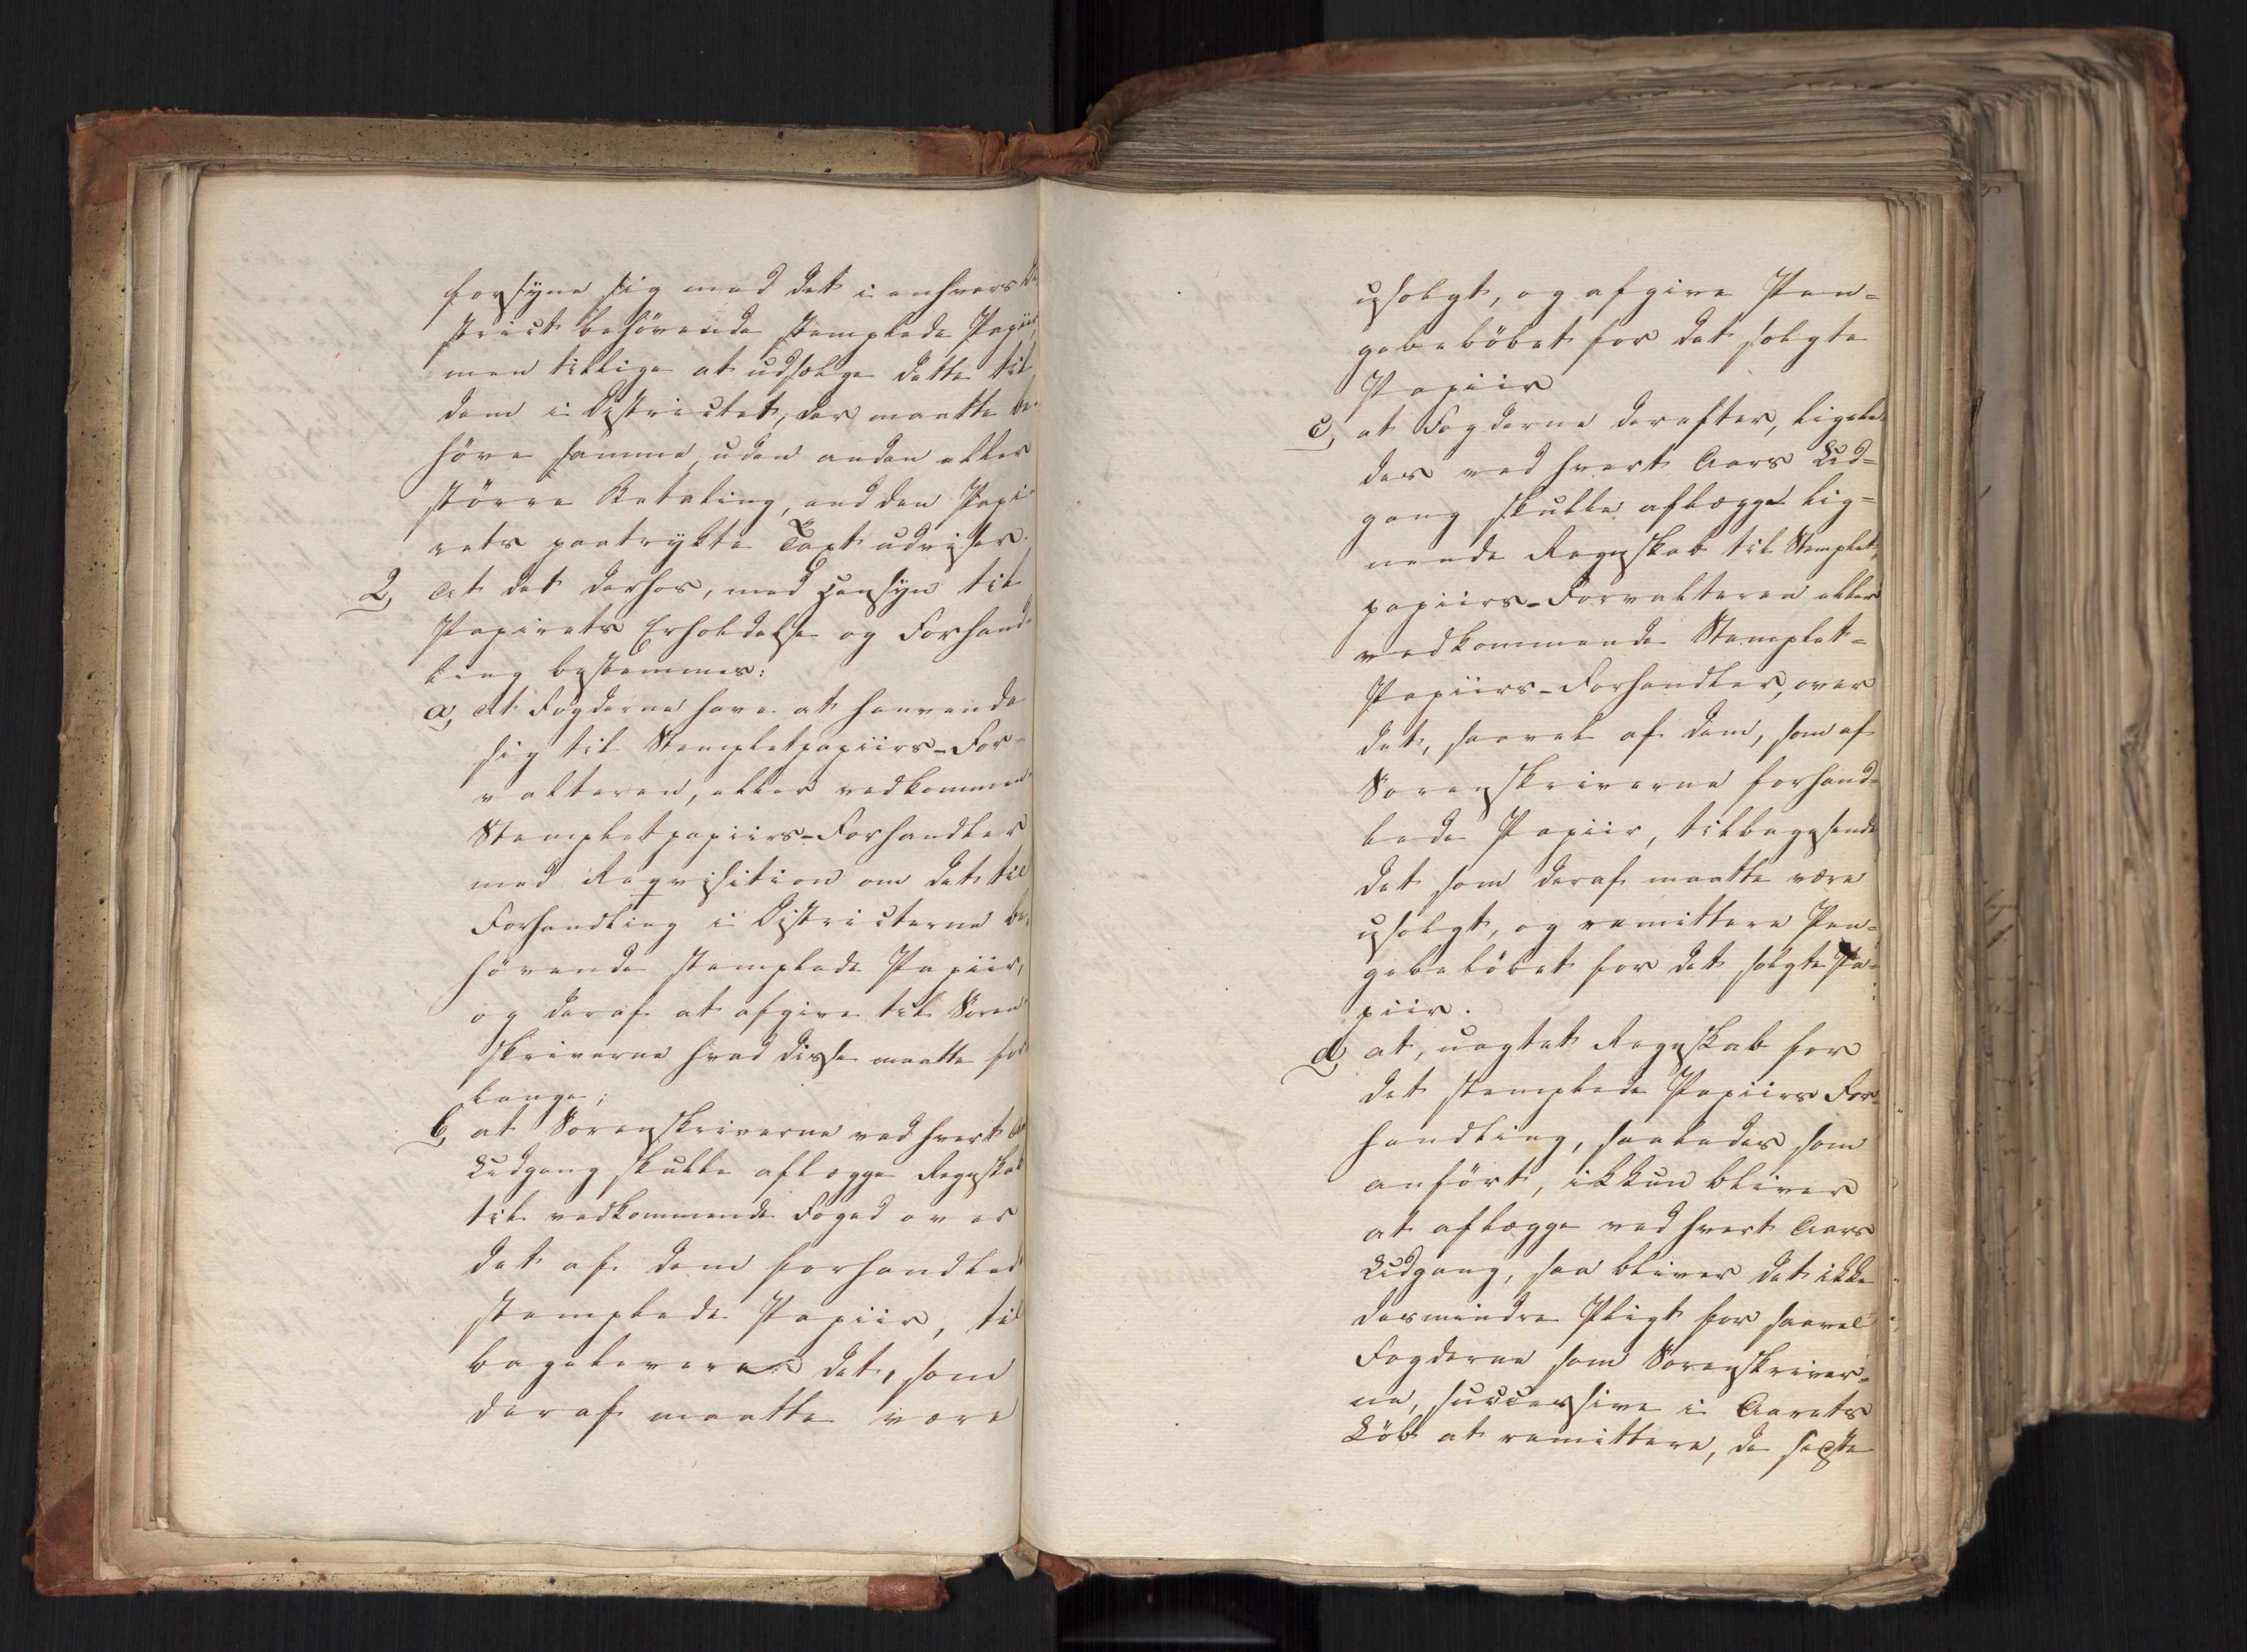 forsyne sig med det i enhvers Di
strict behövende stemplede Papiir,
men tillige at udsælge dette til
dem i Districtet, der maatte be-
höve samme, uden anden eller
större Betaling, end den Papi-
rets paatrykte Taxt udviser.
2, At det derhos, med Hensyn til
Papirets Erholdelse og Forhand-
ling bestemmes:
a, At Fogderne have at henvende
sig til Stempletpapiirs-For-
valteren, eller vedkommen
Stempletpapiirs-Forhandler
med Reqvisition om det til
Forhandling i Districterne be-
hövende stemplede Papiir,
og deraf at afgive til Soren-
skriverne hvad disse maatte for
lange;
b, at Sorenskriverne ved hvert
Udgang skulle aflægge Regnskab
til vedkommende Foged over
det af dem forhandlede
stemplede Papiir, til
bagelevere det, som
deraf maatte være
usolgt, og afgive Pen=
gebelöbet for det solgte
Papiir
c, at Fogderne derefter, ligele-
des ved hvert Aars Ud=
gang skulle aflægge lig=
nende Regnskab til Stemplet-
papiirs-Forvalteren eller
vedkommende Stemplet=
Papiirs-Forhandler, over
det, saavel af dem, som af
Sorenskriverne forhand=
lede Papiir, tilbagesende
det som deraf maatte være
usolgt, og remittere Pen-
gebelöbet for det solgte Pa-
piir.
d, at, uagtet Regnskab for
det stemplede Papiirs For-
handling, saaledes som
anfört, ikkun bliver
at aflægge ved hvert Aars
Udgang, saa bliver det ikke
desmindre Pligt for saavel
Fogderne som Sorenskriver-
ne, successive i Aarets
Löb at remittere, de første